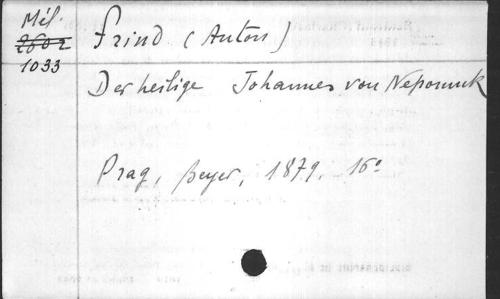 Mél.
2602
1033
Frind (Anton)
Der heilige Johannes von Nepomuk
Prag, Beyer, 1879, 16°